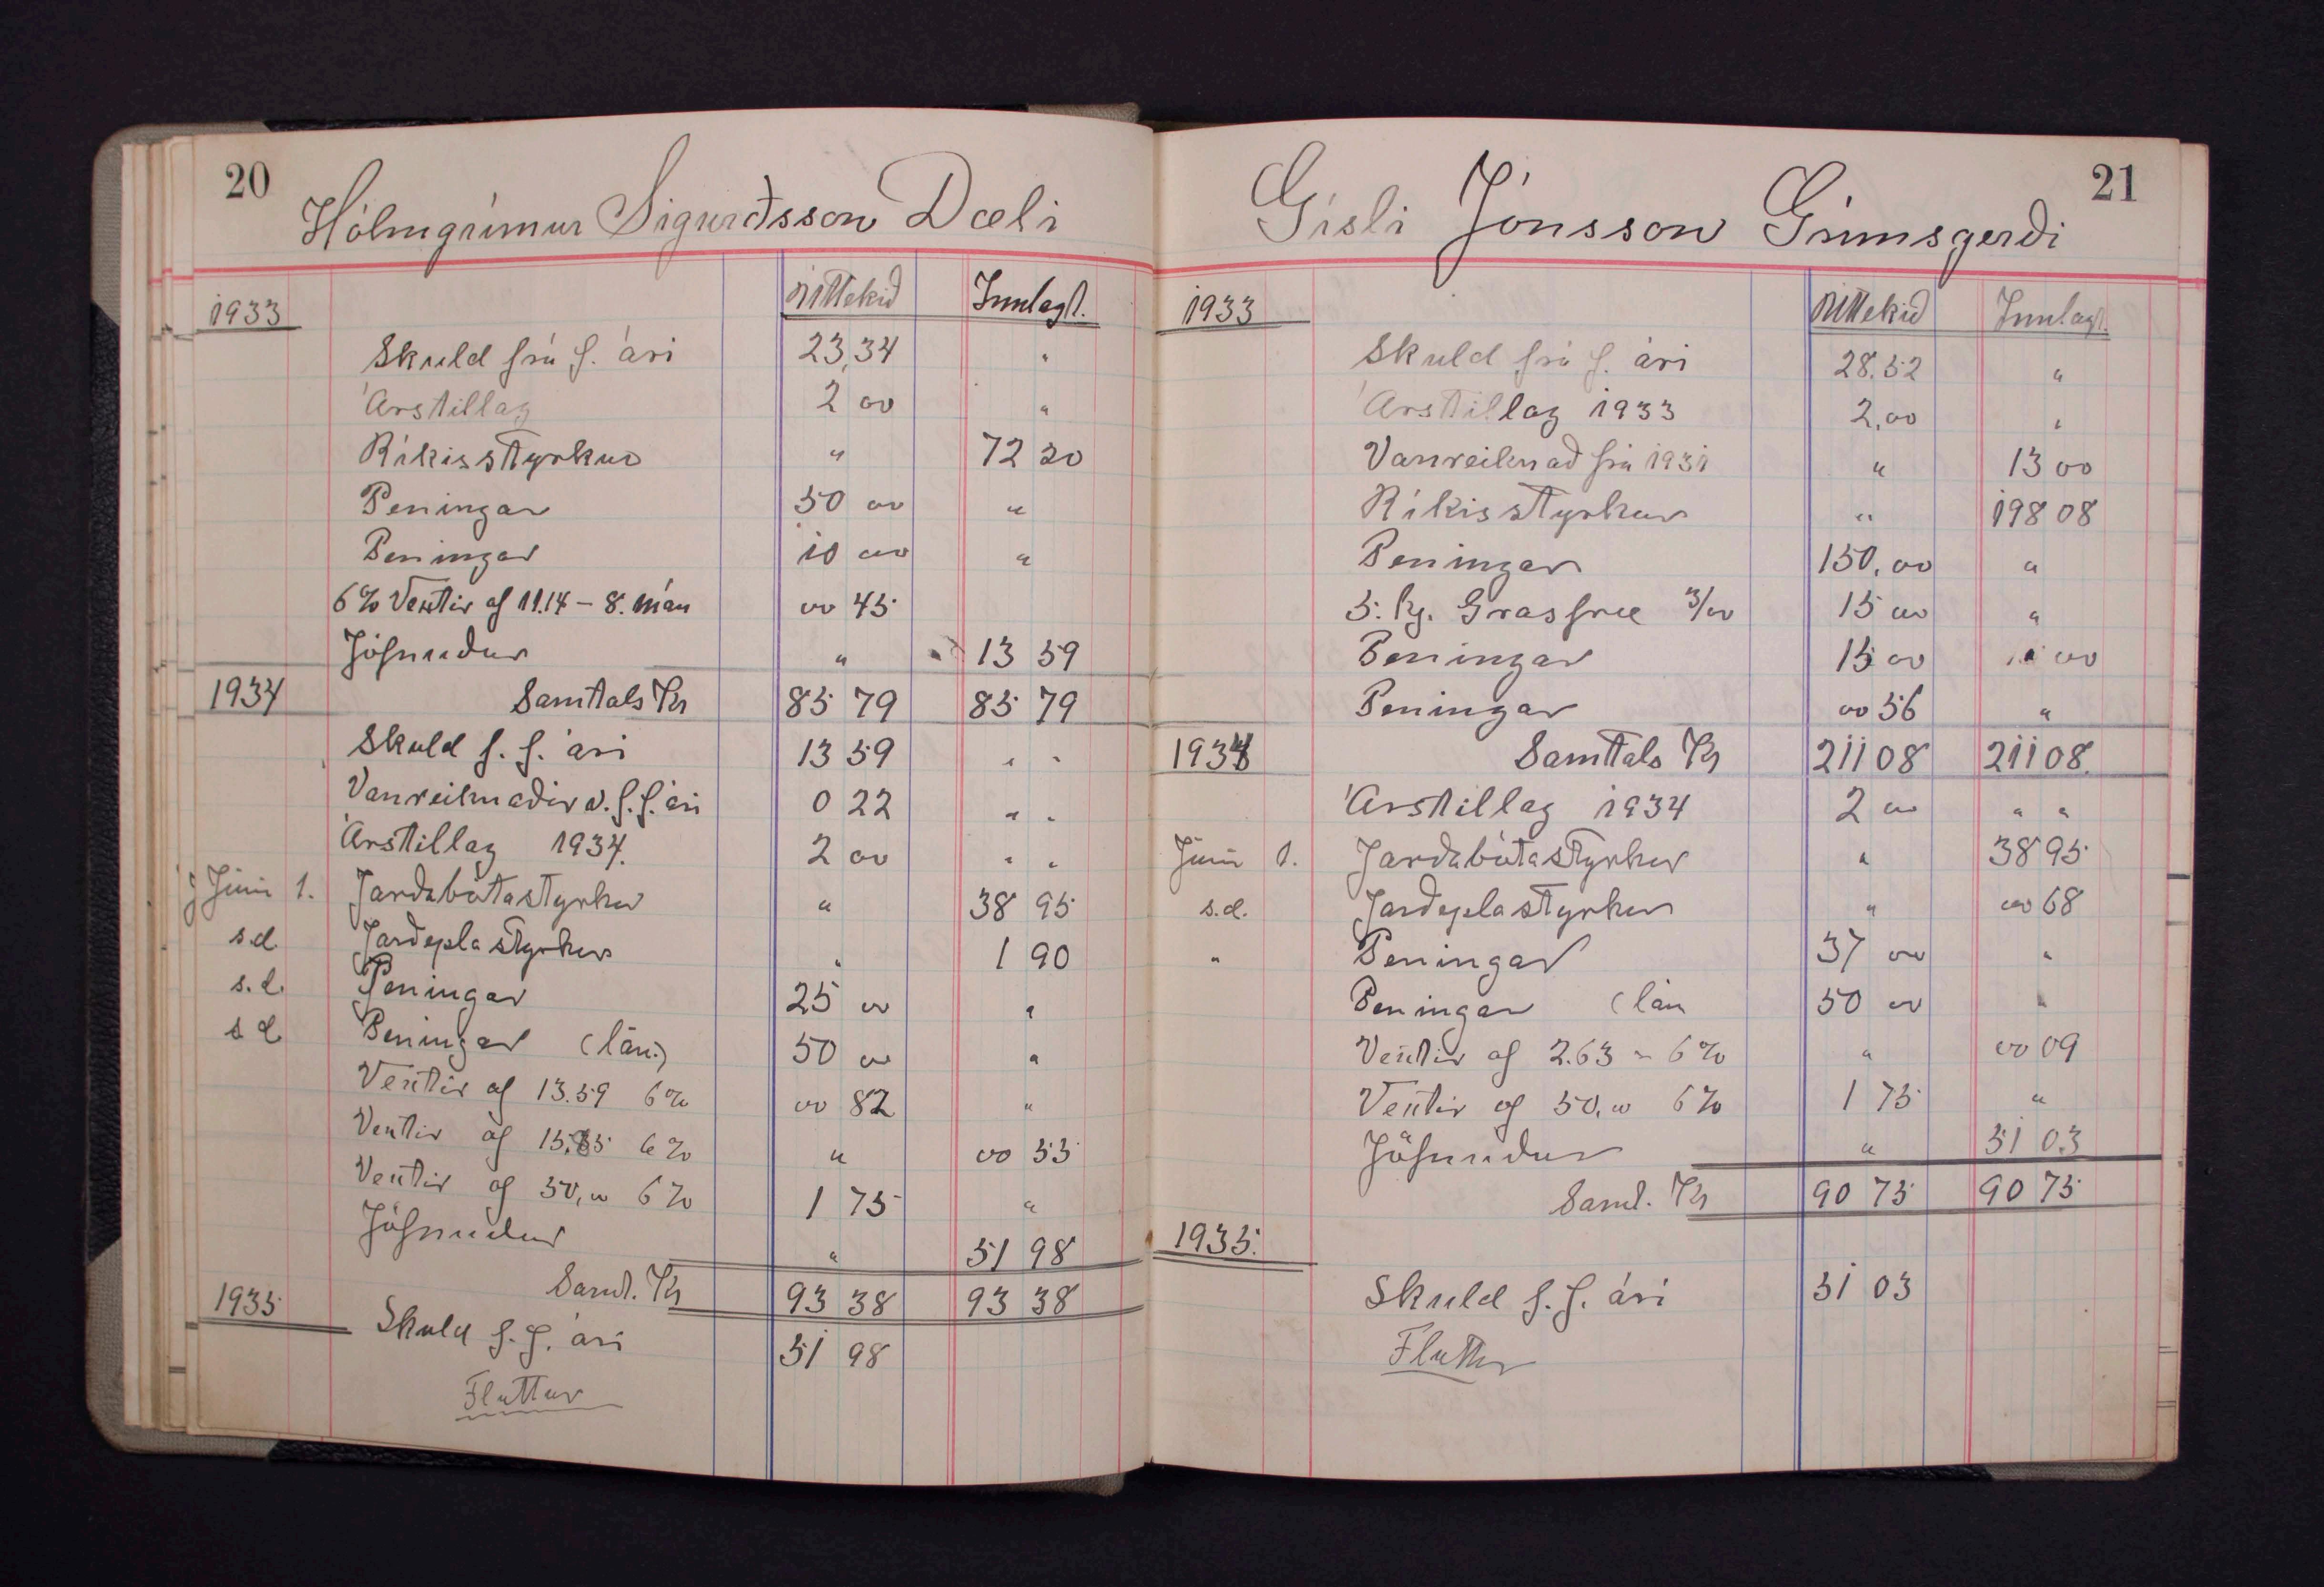 20
Hólmgrímur Sigurðsson Dæli
Úttekið Innlagt.
1933
Skuld frá f. ári 23,34 "
Árstillag 2 00 "
Ríkisstyrkur " 72 20
Peningar 50 00 "
Peningar 10 00 "
6% Vextir af 11.14 – 8. mán 00 45
Jöfnuður " 13 59
1934 Samtals Kr 85 79 85 79
Skuld f. f. ári 13 59 " "
Vanreiknaðir v. f. f. ári 0 22 " "
Árstillag 1934. 2 00 " "
Júní 1. Jarðabótastyrkur " 38 95
s.d. Jarðeplastyrkur " 1 90
s.d. Peningar 25 00 "
s d Peningar (lán) 50 00 "
Vextir af 13.59 6% 00 82 "
Vextir af 15.85 6% " 00 55
Vextir af 50,00 6% 1 75 "
Jöfnuður " 51 98
Samt. Kr 93 38 93 38
1935
Skuld f. f. ári 51 98
Fluttur
21
Gísli Jónsson Grímsgerði
1933 Úttekið Innlagt.
Skuld frá f. ári 28.52 "
Árstillag 1933 2,00 "
Vanreiknað frá 1931 " 13 00
Ríkisstyrkur " 198 08
Peningar 150,00 "
5. kg. Grasfræ 3/00 15 00 "
Peningar 15 00
Peningar 00 56 "
1934 Samtals Kr 211 08 211 08.
Árstillag 1934 2 00 " "
Júní 1. Jarðabótastyrkur " 38 95
s.d. Jarðeplastyrkur " 00 68
" Peningar 37 00 "
Peningar (lán 50 00 "
Vextir af 2.63 – 6% " 00 09
Vextir af 50,00 6% 1 75 "
Jöfnuður " 51 03
Samt. Kr 90 75 90 75
1935.
Skuld f. f. ári 51 03
Fluttur